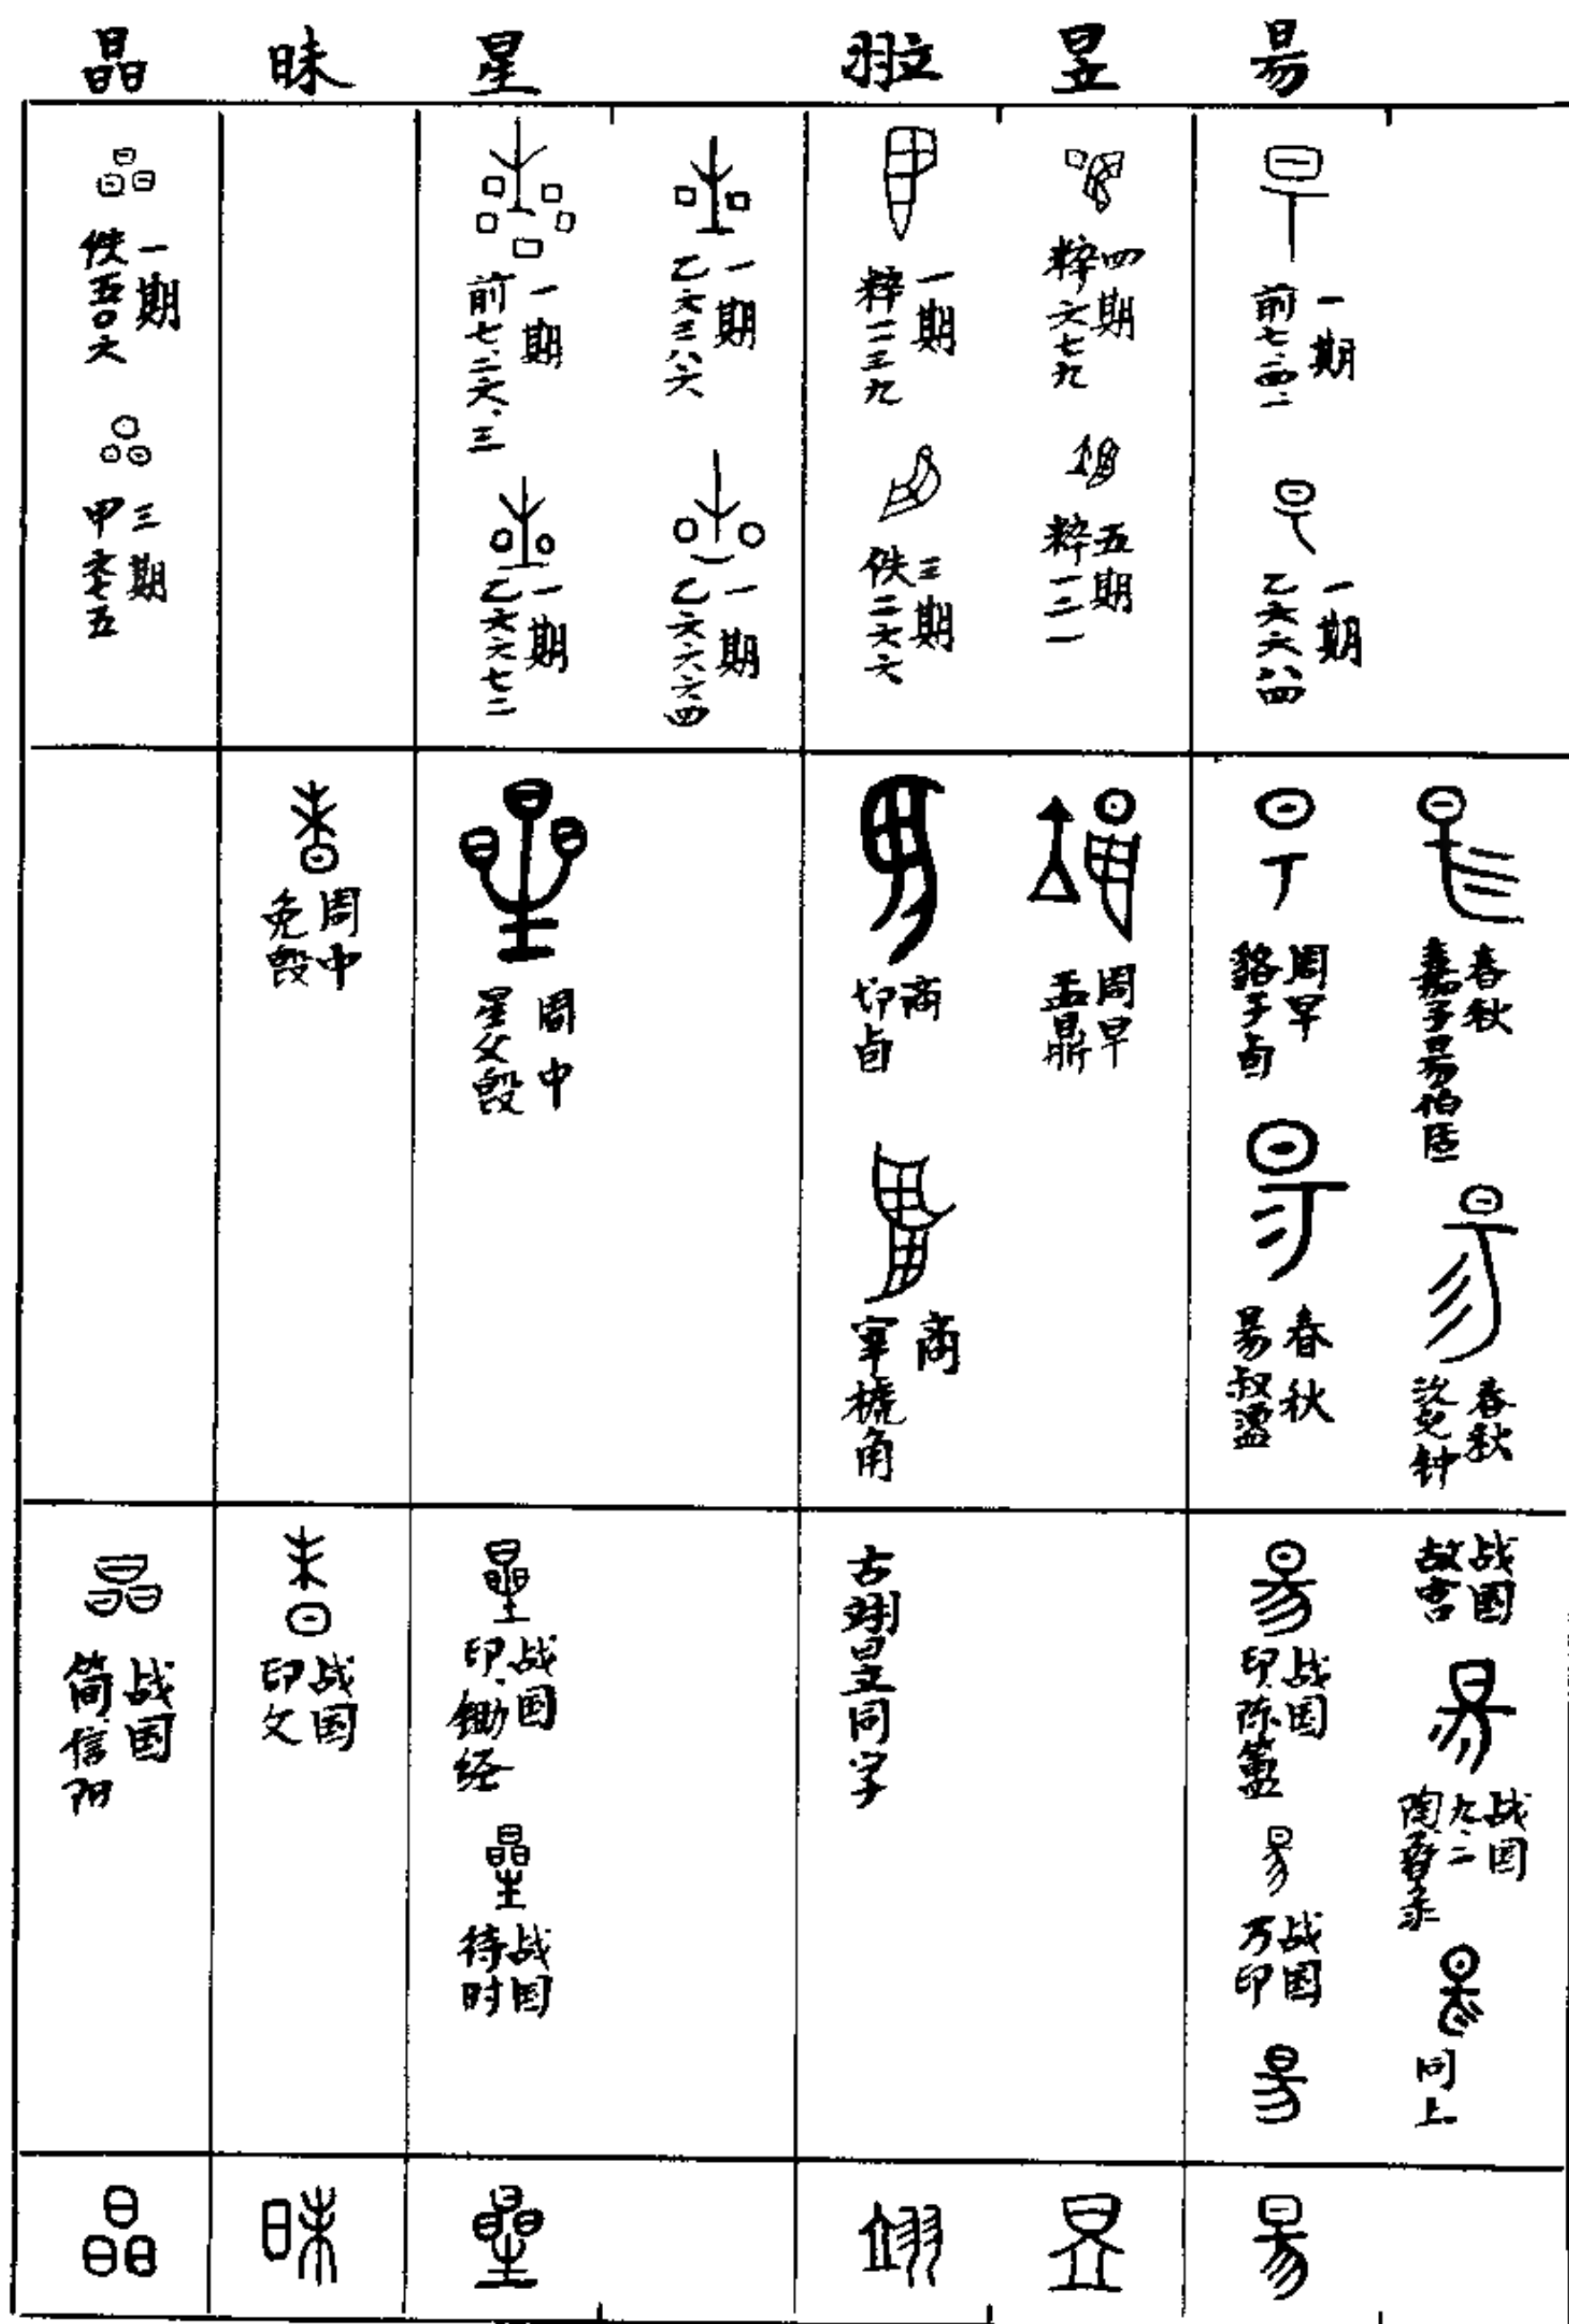 昜
昱
翋
星
昧
晶
一期
前七.四二
一期
乙六六八四
四期
粹六七九
五期
粹一二一
一期
粹二三九
三期
佚二六六
一期
乙六三八六
一期
乙六六六四
一期
前七.二六.三
一期
乙六六七二
一期
佚五〇六
三期
甲六七五
春秋
嘉子昜伯
春秋
沇兒钟
周早
貉子卣
春秋
昜叔盨
周早
盂鼎
商
卣
商
宰椃角
周中
星父𣪘
周中
免𣪘
战国
故宫
战国
九.二
陶录
同上
战国
印.陈簠
战国
万印
古翊昱同字
战国
印.锄经
战国
待时
战国
印文
战国
简信阳
昜
昱
翊
星
昧
晶